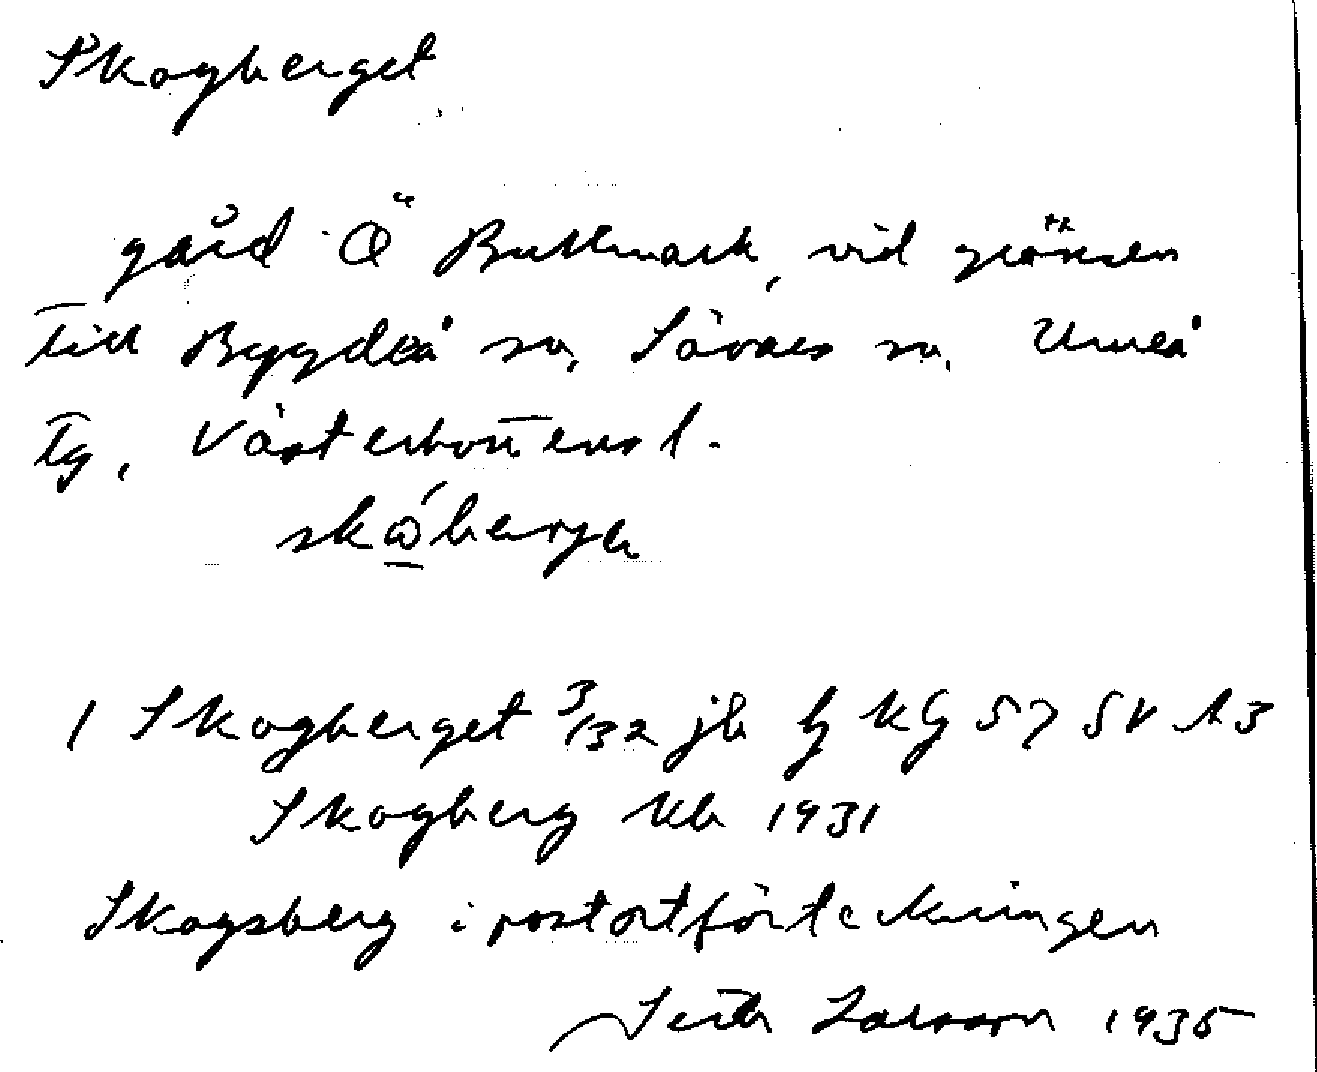 Skogberget
gård Ö Bullmark, vid gränsen
till Bygdeå sn, Sävars sn, Umeå
tg, Västerbottens l.
1 Skogberget 3/32 jb kG 57 SV h3
Skogberg kb 1931
Skogsberg i postortförteckningen
Seth Larsson 1935